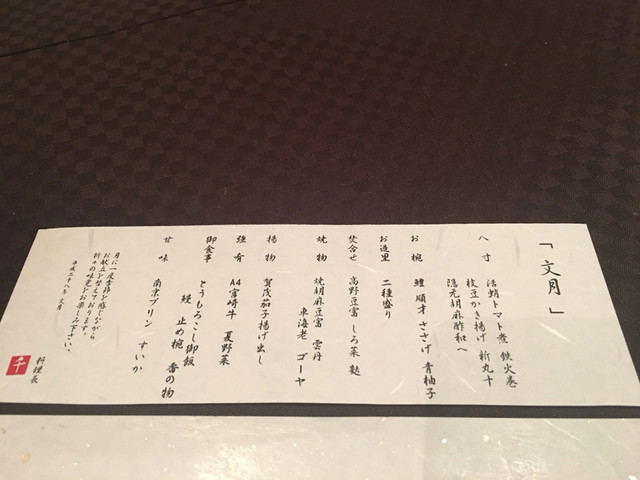 「文月」
八寸 活蛸トマト煮 鉄火巻
枝豆かき揚げ 新丸十
隠元胡麻酢和へ
お椀 鱧 順才 ささげ 青柚子
お造里 二種盛り
焚合せ 高野豆富 しろ菜 麩
焼物 焼胡麻豆富 雲丹
車海老 ゴーヤ
揚物 賀茂茄子揚げ出し
強肴 A4宮崎牛 夏野菜
御食事 とうもろこし御飯
鰻 止め椀 香の物
甘味 南京プリン すいか
月に一度季節を感じながら
お献立を替えております。
折々の味覚をお楽しみ下さい。
平成二十八年 文月
料理長
千